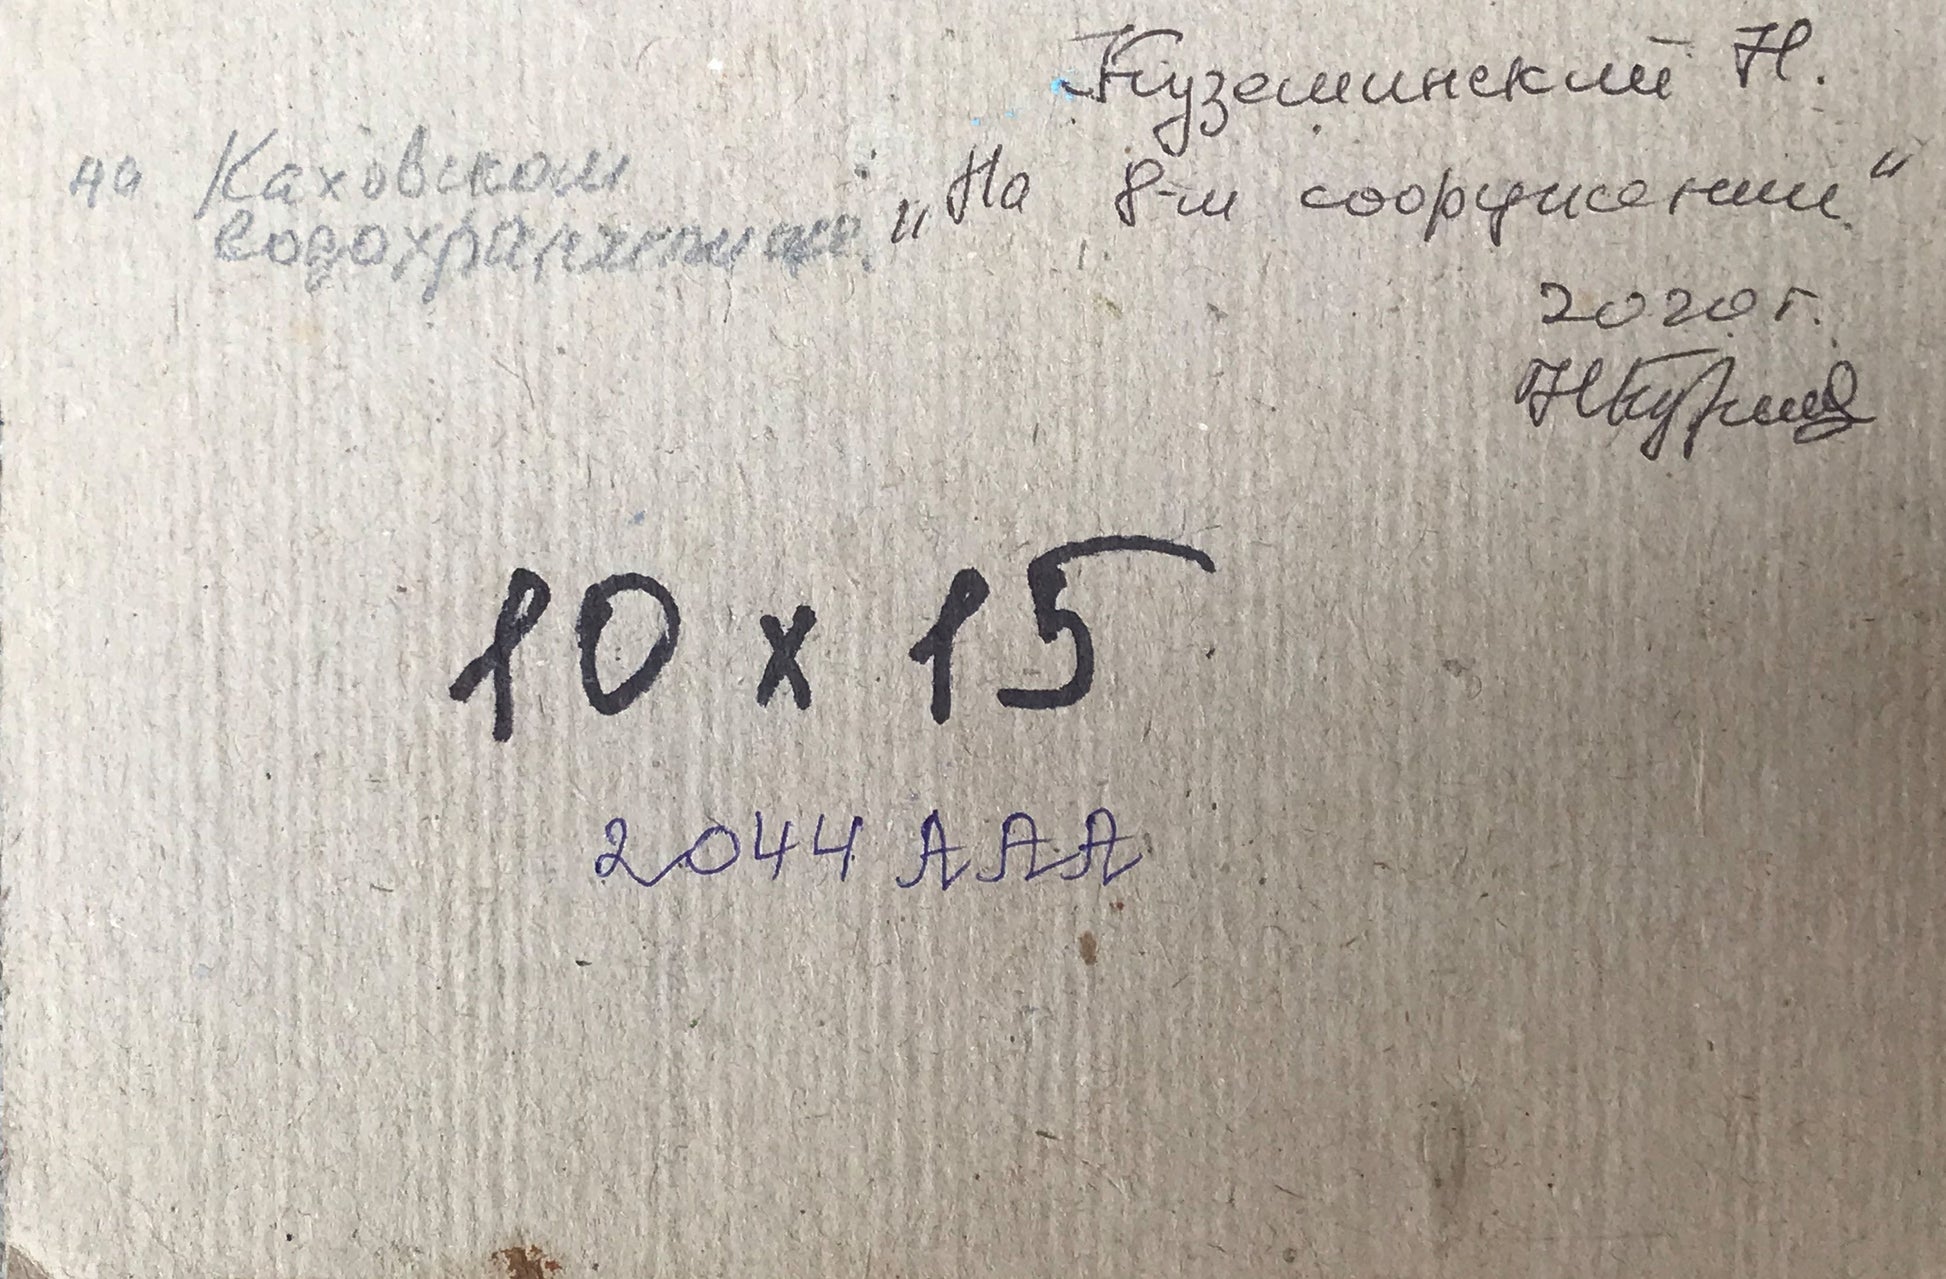 Куземинский Н.
на Каховском
водохранилище.
„На 8-м сооружении“
2020 г.
10 x 15
2044 ААА